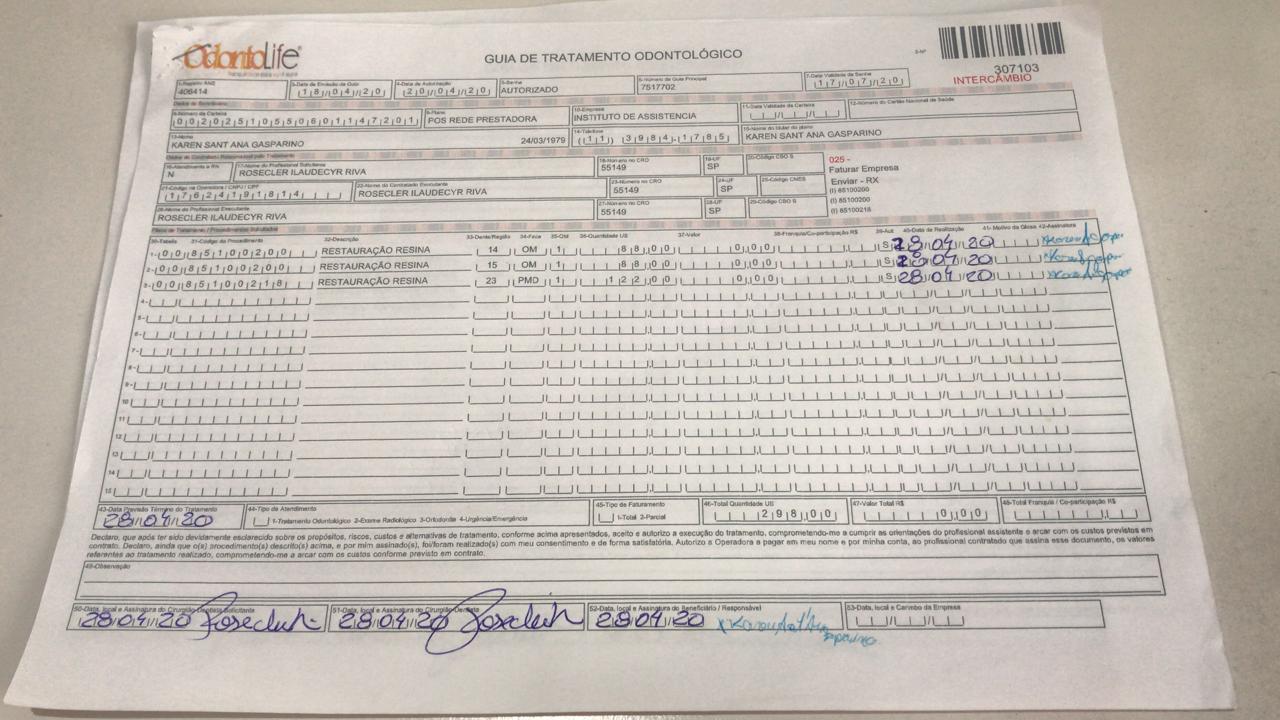 OdontoLife
GUIA DE TRATAMENTO ODONTOLÓGICO
2-Nº
307103
INTERCÂMBIO
1-Registro ANS
406414
3-Data de Emissão da Guia
18/04/20
4-Data de Autorização
20/04/20
5-Senha
AUTORIZADO
6-Número da Guia Principal
7517702
7-Data Validade da Senha
17/07/20
Dados do Beneficiário
8-Número da Carteira
00202510550601147201
9-Plano
POS REDE PRESTADORA
10-Empresa
INSTITUTO DE ASSISTENCIA
11-Data Validade da Carteira
12-Número do Cartão Nacional de Saúde
13-Nome
KAREN SANT ANA GASPARINO
24/03/1979
14-Telefone
(11) 3984-1785
15-Nome do titular do plano
KAREN SANT ANA GASPARINO
16-Atendimento a RN
N
17-Nome do Profissional Solicitante
ROSECLER ILAUDECYR RIVA
18-Número no CRO
55149
19-UF
SP
20-Código CBO S
025 -
Faturar Empresa
Enviar - RX
(I) 85100200
(I) 85100200
(I) 85100218
21-Código na Operadora / CNPJ / CPF
17624191814
22-Nome do Contratado Executante
ROSECLER ILAUDECYR RIVA
23-Número no CRO
55149
24-UF
SP
25-Código CNES
26-Nome do Profissional Executante
ROSECLER ILAUDECYR RIVA
27-Número no CRO
55149
28-UF
SP
29-Código CBO S
Plano de Tratamento / Procedimentos Solicitados
30-Tabela 31-Código do Procedimento 32-Descrição 33-Dente/Região 34-Face 35-Qtd 36-Quantidade US 37-Valor 38-Franquia/Co-participação R$ 39-Aut 40-Data de Realização 41- Motivo da Glosa 42-Assinatura
1- 00 85100200 RESTAURAÇÃO RESINA 14 OM 1 68 00 0 00 S 28/04/20
2- 00 85100200 RESTAURAÇÃO RESINA 15 OM 1 68 00 0 00 S 28/04/20
3- 00 85100218 RESTAURAÇÃO RESINA 23 PMD 1 122 00 0 00 S 28/04/20
4-
5-
6-
7-
8-
9-
10
11
12
13
14
15
43-Data Previsão Término do Tratamento
28/04/20
44-Tipo de Atendimento
1-Tratamento Odontológico 2-Exame Radiológico 3-Ortodontia 4-Urgência/Emergência
45-Tipo de Faturamento
1-Total 2-Parcial
46-Total Quantidade US
298 00
47-Valor Total R$
0 00
48-Total Franquia / Co-participação R$
Declaro, que após ter sido devidamente esclarecido sobre os propósitos, riscos, custos e alternativas de tratamento, conforme acima apresentados, aceito e autorizo a execução do tratamento, comprometendo-me a cumprir as orientações do profissional assistente e arcar com os custos previstos em
contrato. Declaro, ainda que o(s) procedimento(s) descrito(s) acima, e por mim assinado(s), foi/foram realizado(s) com meu consentimento e de forma satisfatória. Autorizo a Operadora a pagar em meu nome e por minha conta, ao profissional contratado que assina esse documento, os valores
referentes ao tratamento realizado, comprometendo-me a arcar com os custos conforme previsto em contrato.
49-Observação
50-Data, local e Assinatura do Cirurgião-Dentista Solicitante
28/04/20
51-Data, local e Assinatura do Cirurgião-Dentista
28/04/20
52-Data, local e Assinatura do Beneficiário / Responsável
28/04/20
53-Data, local e Carimbo da Empresa